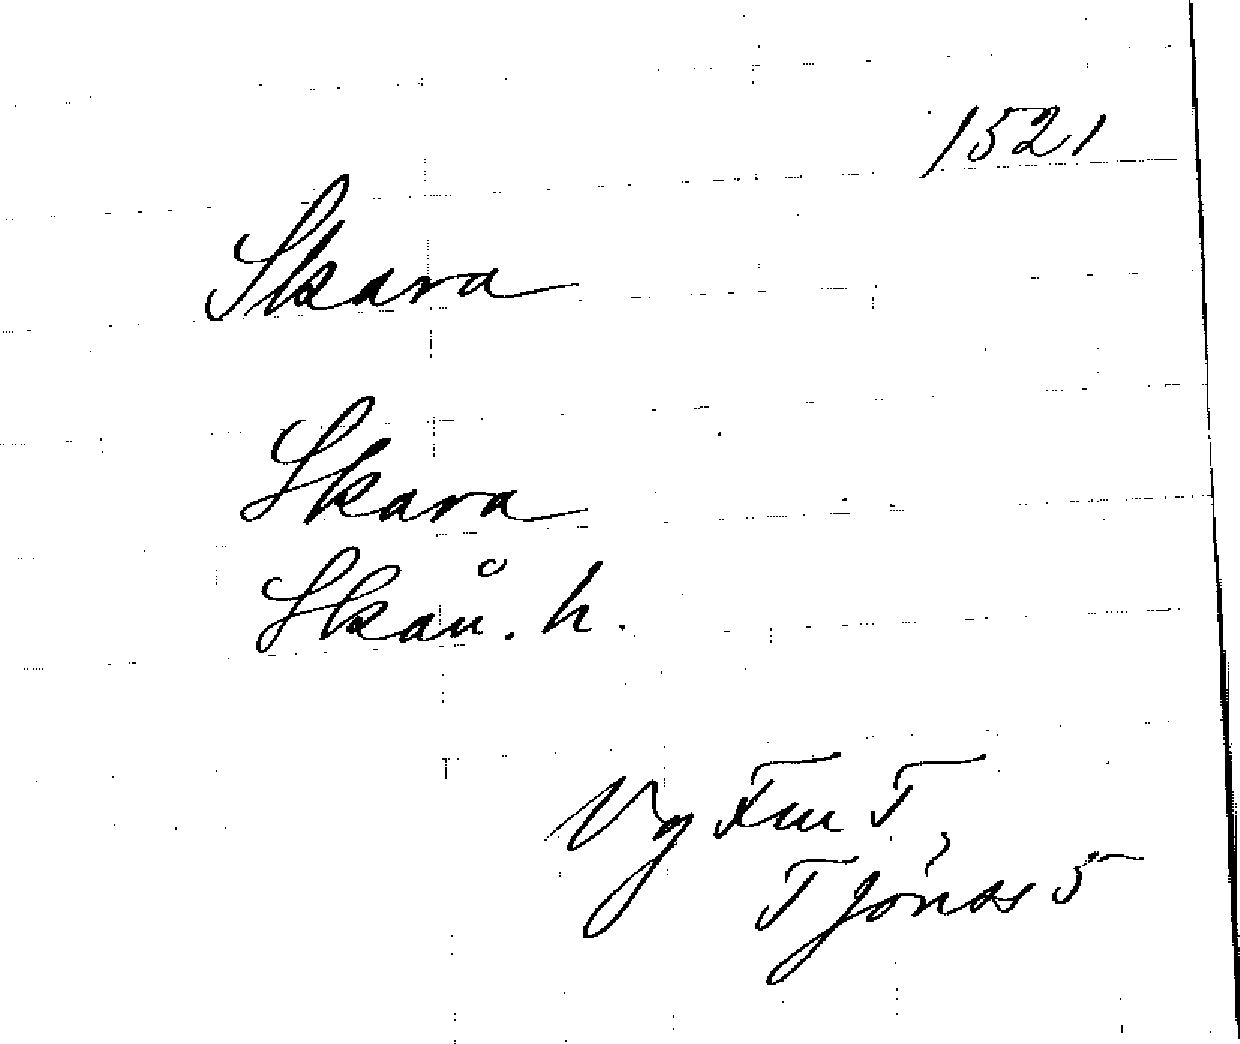 1521
Skara
Skara
Skån. h.
Vg Fm T,
T Jónss 5